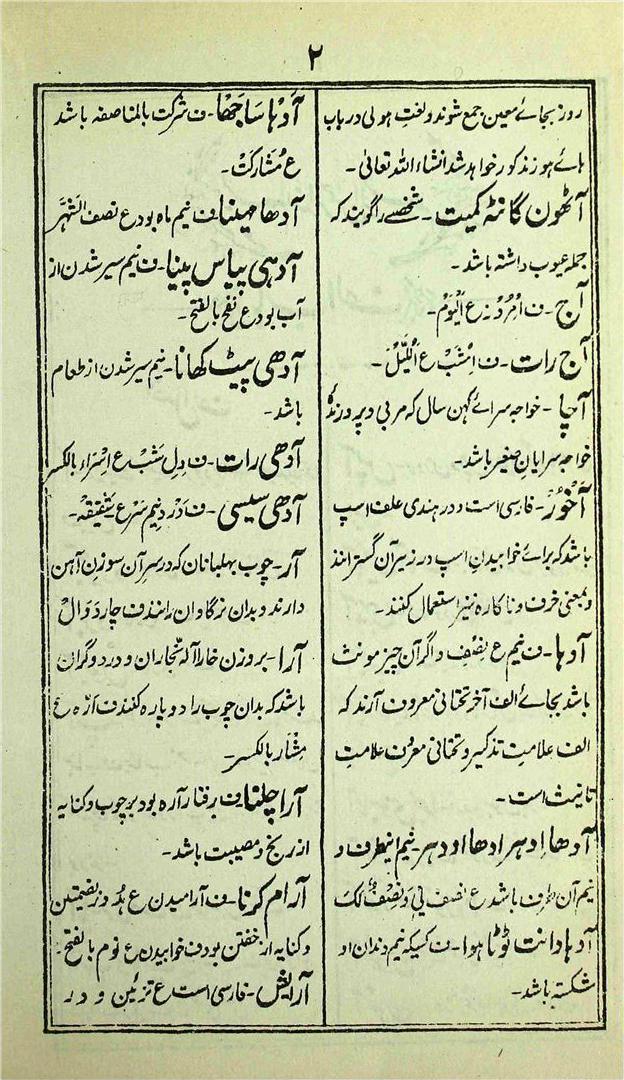 ۲
روز بجائے معین جمع شوند و لغت ہولی در باب
ہائے ہوز مذکور خواہد شد انشاء اللہ تعالیٰ۔
آٹھون گانٹھ کمیت۔ شخصے را گویند کہ
جملہ عیوب داشتہ باشد۔
آج۔ ف اِمْرُوْز ع اَلْیَوْمُ۔
آج رات۔ ف اِمْشَبْ ع اَللَّیْلَ۔
آچا۔ خواجہ سرائے کہن سال کہ مربی و پرورندہ
خواجہ سرایان صغیر باشد۔
آخُوْر۔ فارسی است و در ہندی علف اسپ
باشد کہ برائے خوابیدن اسپ در زیر آن گسترانند
و بمعنی خرف و ناکارہ نیز استعمال کنند۔
آدہا۔ ف نیم ع نِصْف و اگر آن چیز مونث
باشد بجائے الف آخر تحتانی معروف آرند کہ
الف علامت تذکیر و تحتانی معروف علامت
تانیث است۔
آدھا اِدہر ادھا اودہر۔ نیم اینطرف و
نیم آن طرف باشد ع نصف لِی وَ نِصْفٌ لَکَ
آدہا دانت ٹوٹا ہوا۔ ف کسیکہ نیم دندان او
شکستہ باشد۔
آدْہا سَاجھا۔ ف شرکت بالمناصفہ باشد
ع مُشارکَتْ۔
آدھا مہینا۔ ف نیم ماہ بود ع نصف الشَّہر
آدہی پیاس پینا۔ ف نیم سیر شدن از
آب بود ع نفح بالفتح۔
آدھی پیٹ کھانا۔ نیم سیر شدن از طعام
باشد۔
آدھی رات۔ ف دِلِ شَبْ ع بالکسر
آدھی سیسی۔ ف دَرْدِ نِیم سَر ع شَقِیْقَہْ۔
آر۔ چوب بہلبانان کہ در سر آن سوزن آہن
دارند و بدان نرگاوان رانند ف
آرا۔ بروزن خارا آلہ نجّاران و درودگران
باشد کہ بدان چوب را دوپارہ کنند ف ارّہ ع
مِنْشَار بالکسر۔
آرا چلنا۔ ف رفتار آرہ بود بر چوب و کنایہ
از رنج و مصیبت باشد۔
آرام کرنا۔ ف آرامیدن ع بضمتین
و کنایہ از خفتن بود ف خوابیدن ع نوم بالفتح۔
آرایش۔ فارسی است ع تزئین و در